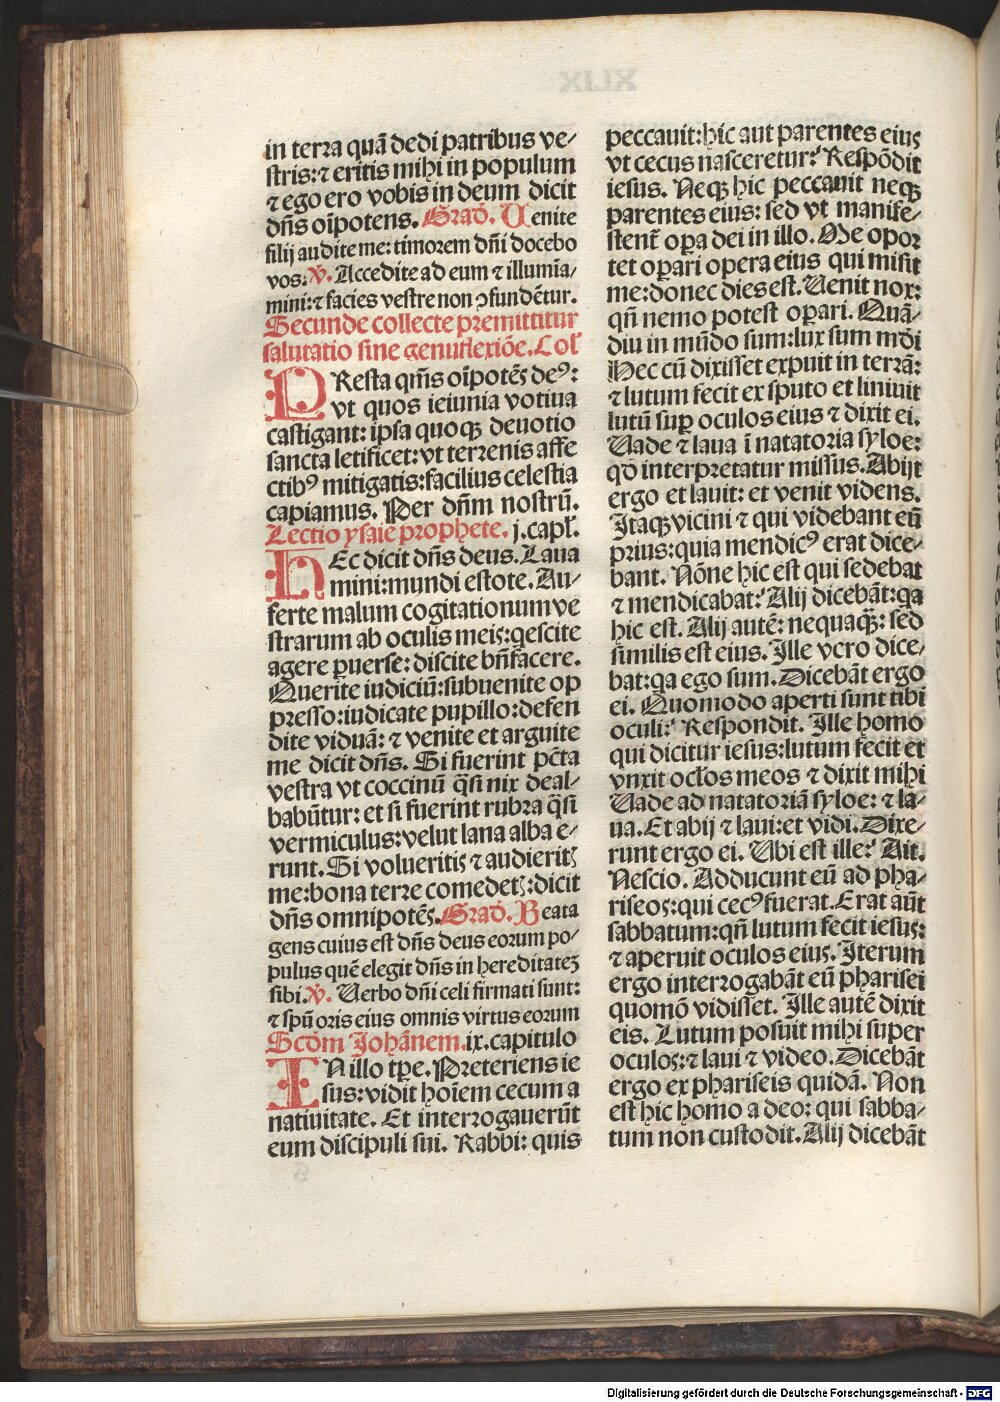 in terra quā dedi patribus ve⸗
stris:⁊ eritis mihi in populum
⁊ ego ero vobis in deum dicit
dn̄s oīpotens. Grad̄. Uenite
filij audite me: timorem dn̄i docebo
vos. v̄. Accedite ad eum ⁊ illumīa⸗
mini:⁊ facies vestre non ↄfundētur.
Secunde collecte premittitur
salutatio sine genuflexiōe. Col̄
PResta qm̄s oīpotēs deꝰ:
vt quos ieiunia votiua
castigant: ipsa quoqꝫ deuotio
sancta letificet: vt terrenis affe
ctibꝰ mitigatis: facilius celestia
capiamus. Per dn̄m nostrū.
Lectio ysaie prophete. j. capl̄.
HEc dicit dn̄s deus. Laua
mini: mundi estote. Au⸗
ferte malum cogitationum ve
strarum ab oculis meis: q̄escite
agere ꝑuerse: discite bn̄facere.
Querite iudiciū: subuenite op
presso: iudicate pupillo: defen
dite viduā: ⁊ venite et arguite
me dicit dn̄s. Si fuerint pctā
vestra vt coccinū q̄si nix deal⸗
babūtur: et si fuerint rubra q̄si
vermiculus: velut lana alba e⸗
runt. Si volueritis ⁊ audieritꝭ
me: bona terre comedetꝭ: dicit
dn̄s omnipotēs. Grad̄. Beata
gens cuius est dn̄s deus eorum po⸗
pulus quē elegit dn̄s in hereditatez
sibi. v̄. Uerbo dn̄i celi firmati sunt:
⁊ spū oris eius omnis virtus eorum
Scd̄m Johānem. ix. capitulo
IN illo tp̄e. Preteriens ie
sus: vidit hoīem cecum a
natiuitate. Et interrogauerūt
eum discipuli sui. Rabbi: quis
peccauit: hic aut parentes eius
vt cecus nasceretur? Respōdit
iesus. Neqꝫ hic peccauit neqꝫ
parentes eius: sed vt manife⸗
stent᷑ oꝑa dei in illo. Me opor
tet oꝑari opera eius qui misit
me: donec dies est. Uenit nox:
qn̄ nemo potest oꝑari. Quā⸗
diu in mūdo sum: lux sum mūdi
Hec cū dixisset expuit in terrā:
⁊ lutum fecit ex sputo et liniuit
lutū suꝑ oculos eius ⁊ dixit ei.
Uade ⁊ laua ī natatoria syloe:
qd̄ interpretatur missus. Abijt
ergo et lauit: et venit videns.
Itaqꝫ vicini ⁊ qui videbant eū
prius: quia mendicꝰ erat dice⸗
bant. Nōne hic est qui sedebat
⁊ mendicabat? Alij dicebāt: qa
hic est. Alij autē: nequaqꝫ̄: sed
similis est eius. Ille vero dice⸗
bat: qa ego sum. Dicebāt ergo
ei. Quomodo aperti sunt tibi
oculi? Respondit. Ille homo
qui dicitur iesus: lutum fecit et
vnxit ocl̄os meos ⁊ dixit mihi
Uade ad natatoriā syloe: ⁊ la⸗
ua. Et abij ⁊ laui: et vidi. Dixe⸗
runt ergo ei. Ubi est ille? Ait.
Nescio. Adducunt eū ad pha⸗
riseos: qui cecꝰ fuerat. Erat aūt
sabbatum: qn̄ lutum fecit iesus:
⁊ aperuit oculos eius. Iterum
ergo interrogabāt eū pharisei
quomō vidisset. Ille autē dixit
eis. Lutum posuit mihi super
oculos: ⁊ laui ⁊ video. Dicebāt
ergo ex phariseis quidā. Non
est hic homo a deo: qui sabba⸗
tum non custodit. Alij dicebāt
Digitalisierung gefördert durch die Deutsche Forschungsgemeinschaft - DFG